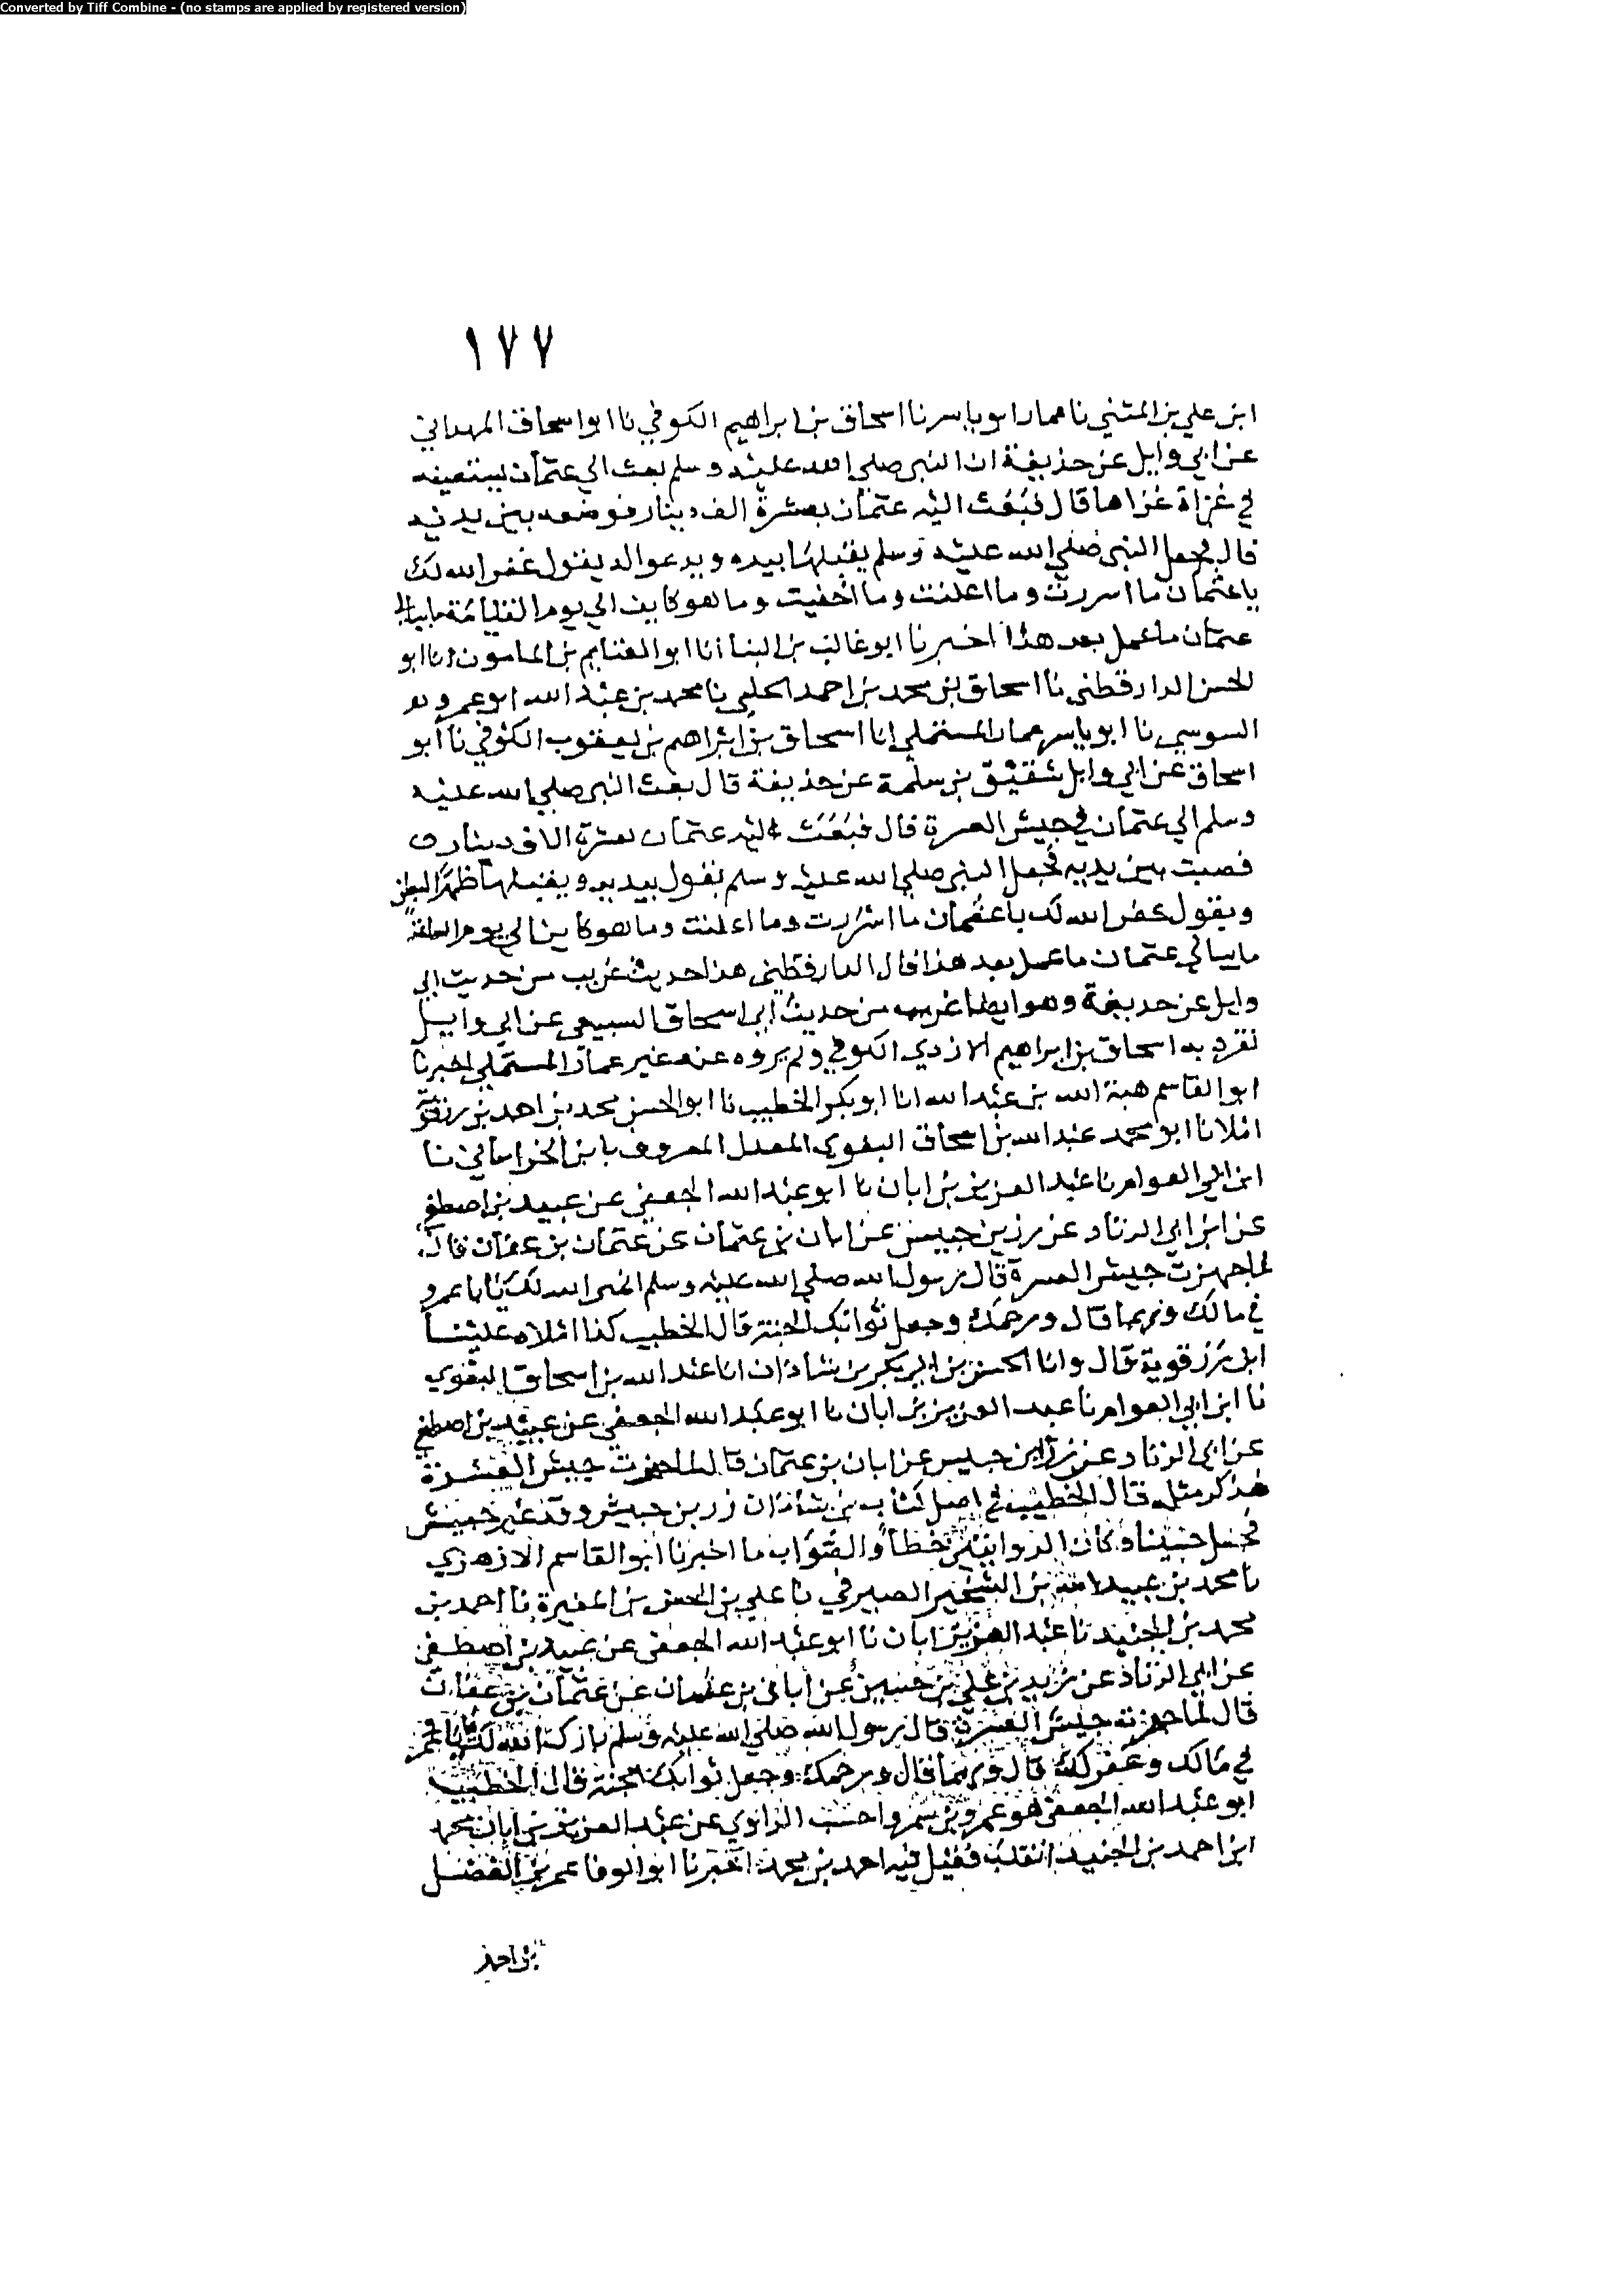 Converted by Tiff Combine - (no stamps are applied by registered version)
١٧٧
ابن علي بن المثني نا عمار ابو ياسر نا اسحاق بن ابراهيم الكوفي نا ابو اسحاق الهمداني
عن ابي وايل عن حذيفة ان النبي صلي الله عليه وسلم بعث الي عثمان يستعينه
في غزاة غزاها قال فبعث اليه عثمان بعشرة الف دينار فوضعه بين يديه
قال فجعل النبي صلي الله عليه وسلم يقبلها بيده ويدعوا له يقول غفر الله لك
يا عثمان ما اسررت وما اعلنت وما اخفيت وما هو كاين الي يوم القيامة ما يبالي
عثمان ما عمل بعد هذا اخبرنا ابو غالب بن البنا انا ابو الغنايم بن المامون انا ابو
الحسن الدارقطني نا اسحاق بن محمد بن احمد الحلبي نا محمد بن عبد الله ابو عمرو
السوسي نا ابو ياسر عمار المستملي انا اسحاق بن ابراهيم بن يعقوب الكوفي نا ابو
اسحاق عن ابي وايل شقيق بن سلمة عن حذيفة قال بعث النبي صلي الله عليه
وسلم الي عثمان في جيش العسرة قال فبعث اليه عثمان بعشرة الاف دينار
فصبت بين يديه فجعل النبي صلي الله عليه وسلم يقول بيديه ويقبلها ظهرا لبطن
ويقول غفر الله لك يا عثمان ما اسررت وما اعلنت وما هو كاين الي يوم القيامة
ما يبالي عثمان ما عمل بعد هذا قال الدارقطني هذا حديث غريب من حديث ابي
وايل عن حذيفة وهو ايضا غريب من حديث ابي اسحاق السبيعي عن ابي وايل
تفرد به اسحاق بن ابراهيم الازدي الكوفي ولم يروه عنه غير عمار المستملي اخبرنا
ابو القاسم هبة الله بن عبد الله انا ابو بكر الخطيب نا ابو الحسن محمد بن احمد بن رزقوية
املا نا ابو محمد عبد الله بن اسحاق البغوي المعدل المعروف بابن الخراساني نا
ابن ابي العوام نا عبد العزيز بن ابان نا ابو عبد الله الجعفي عن عبيد بن اصطفي
عن ابن ابي الزناد عن رزين جبيش عن ابان بن عثمان عن عثمان بن عفان قال
لما جهزت جيش العسرة قال رسول الله صلي الله عليه وسلم الله لك يا ابا عمرو
في مالك وربما قال ورحمك وجعل ثوابك الجنة قال الخطيب كذا املاه علينا
ابن رزقوية قال وانا الحسن بن ابي بكر بن شاذان انا عبد الله بن اسحاق البغوي
نا ابن ابي العوام نا عبد العزيز بن ابان نا ابو عبد الله الجعفي عن عبيد بن اصطفي
عن ابي الزناد عن عن ابان بن عثمان قال لما جهزت جيش العسرة
فذكر مثله قال الخطيب في اصل كتاب بن شاذان زر بن حبيش وقد غير حبيش
فجعل حنينا وكان الروايتين خطأ والصواب ما اخبرنا ابو القاسم الازهري
نا محمد بن عبيد الله بن الشخير الصيرفي نا علي بن الحسن بن المغيرة نا احمد بن
محمد بن الجنيد نا عبد العزيز بن ابان نا ابو عبد الله الجعفي عن عبيد بن اصطفي
عن ابي الزناد عن زيد بن علي بن حنين عن ابان بن عثمان عن عثمان بن عفان
قال لما جهزت جيش العسرة قال رسول الله صلي الله عليه وسلم بارك الله لك يا
في مالك وغفر لك قال وربما قال ورحمك وجعل ثوابك الجنة قال الخطيب
ابو عبد الله الجعفي هو عمرو بن شمر واحسب الراوي عن عبد العزيز بن ابان محمد
ابن احمد بن الجنيد انقلب فقيل فيه احمد بن محمد اخبرنا ابو الوفا عمر بن الفضل
بن احمد